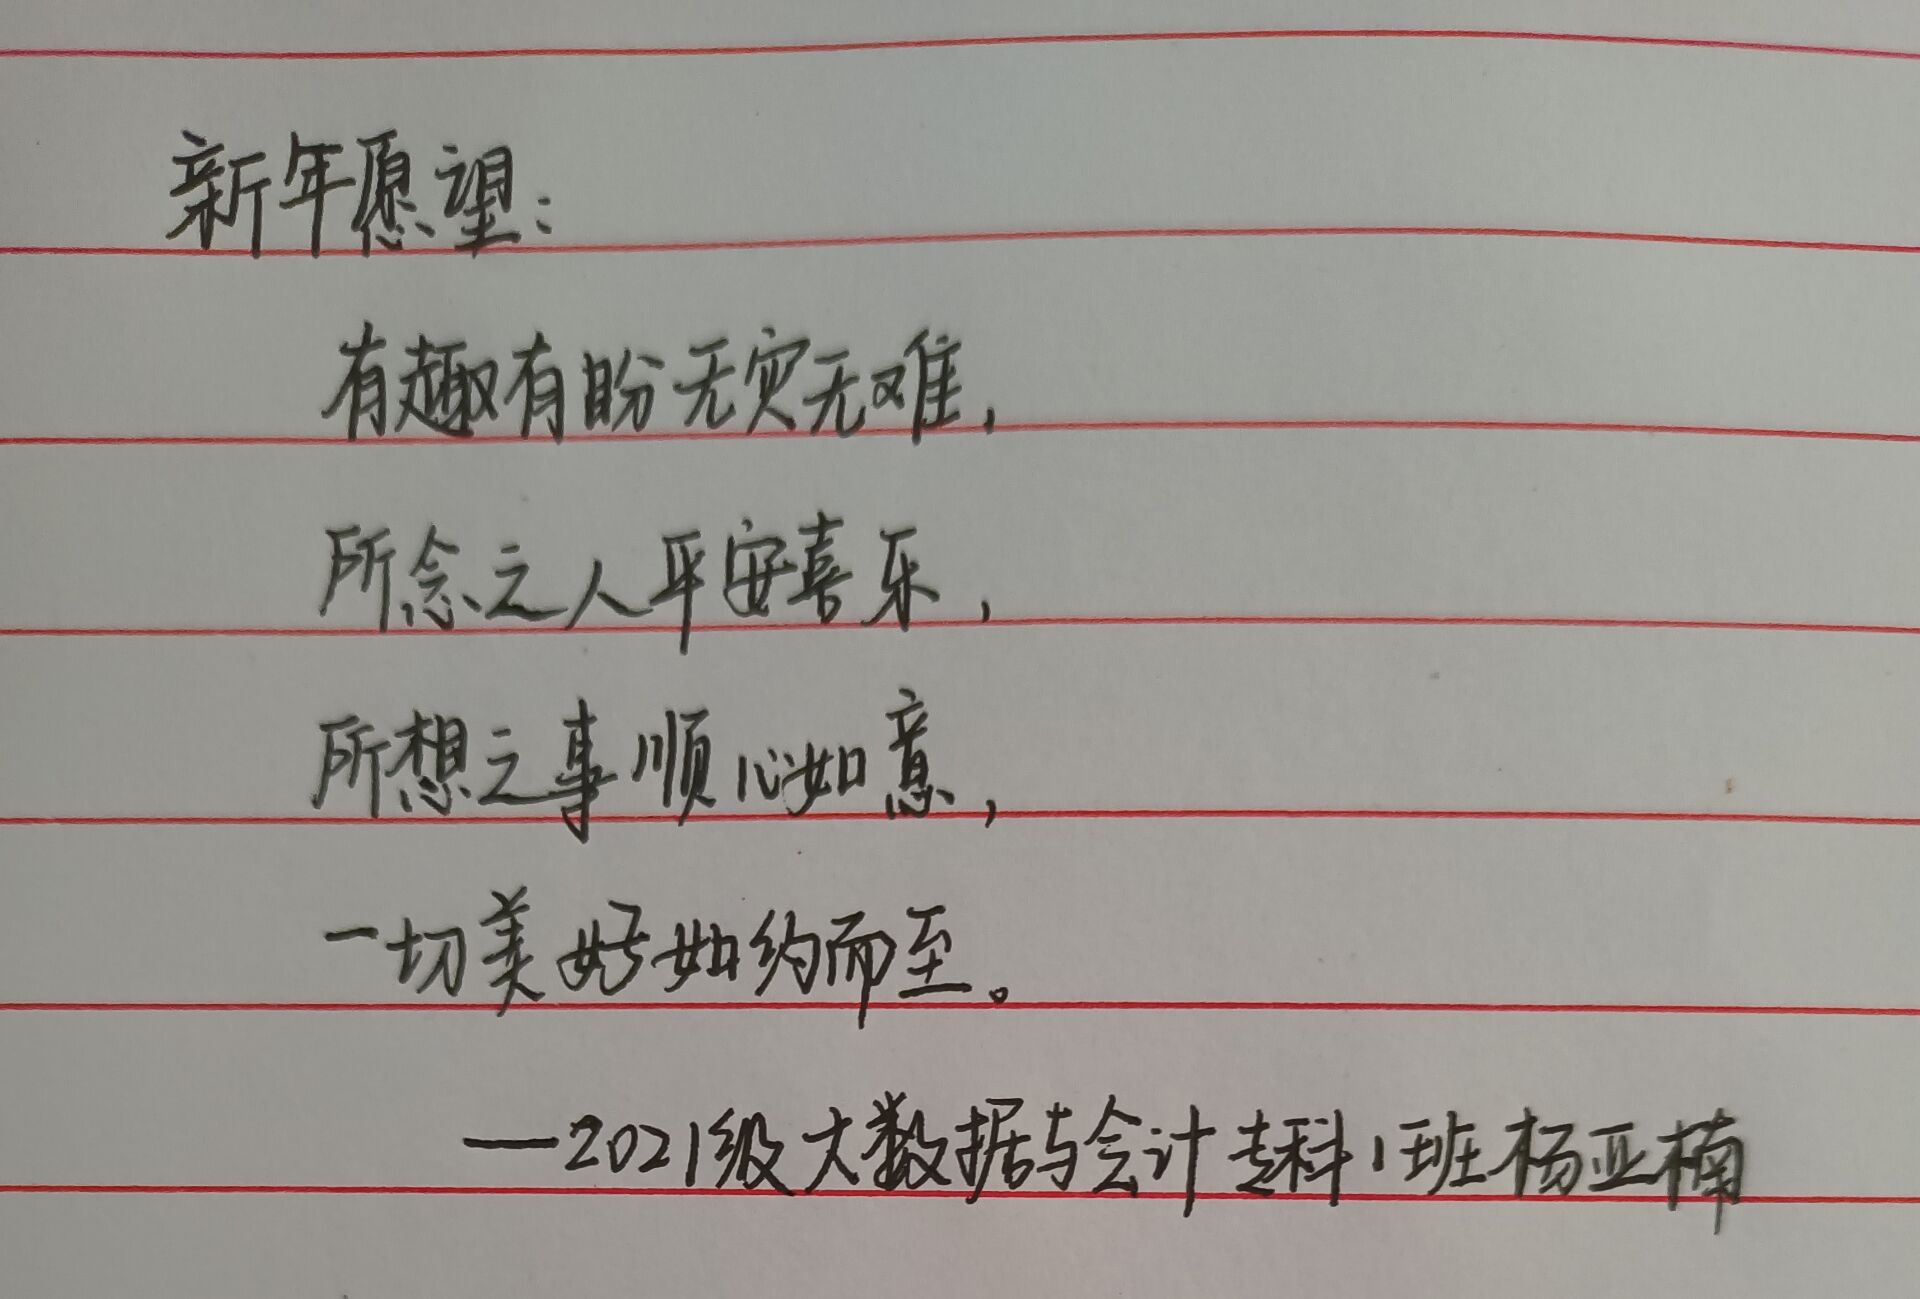 新年愿望:
有趣有盼无灾无难,
所念之人平安喜乐,
所想之事顺心如意,
一切美好如约而至。
—2021级大数据与会计专科1班杨亚楠